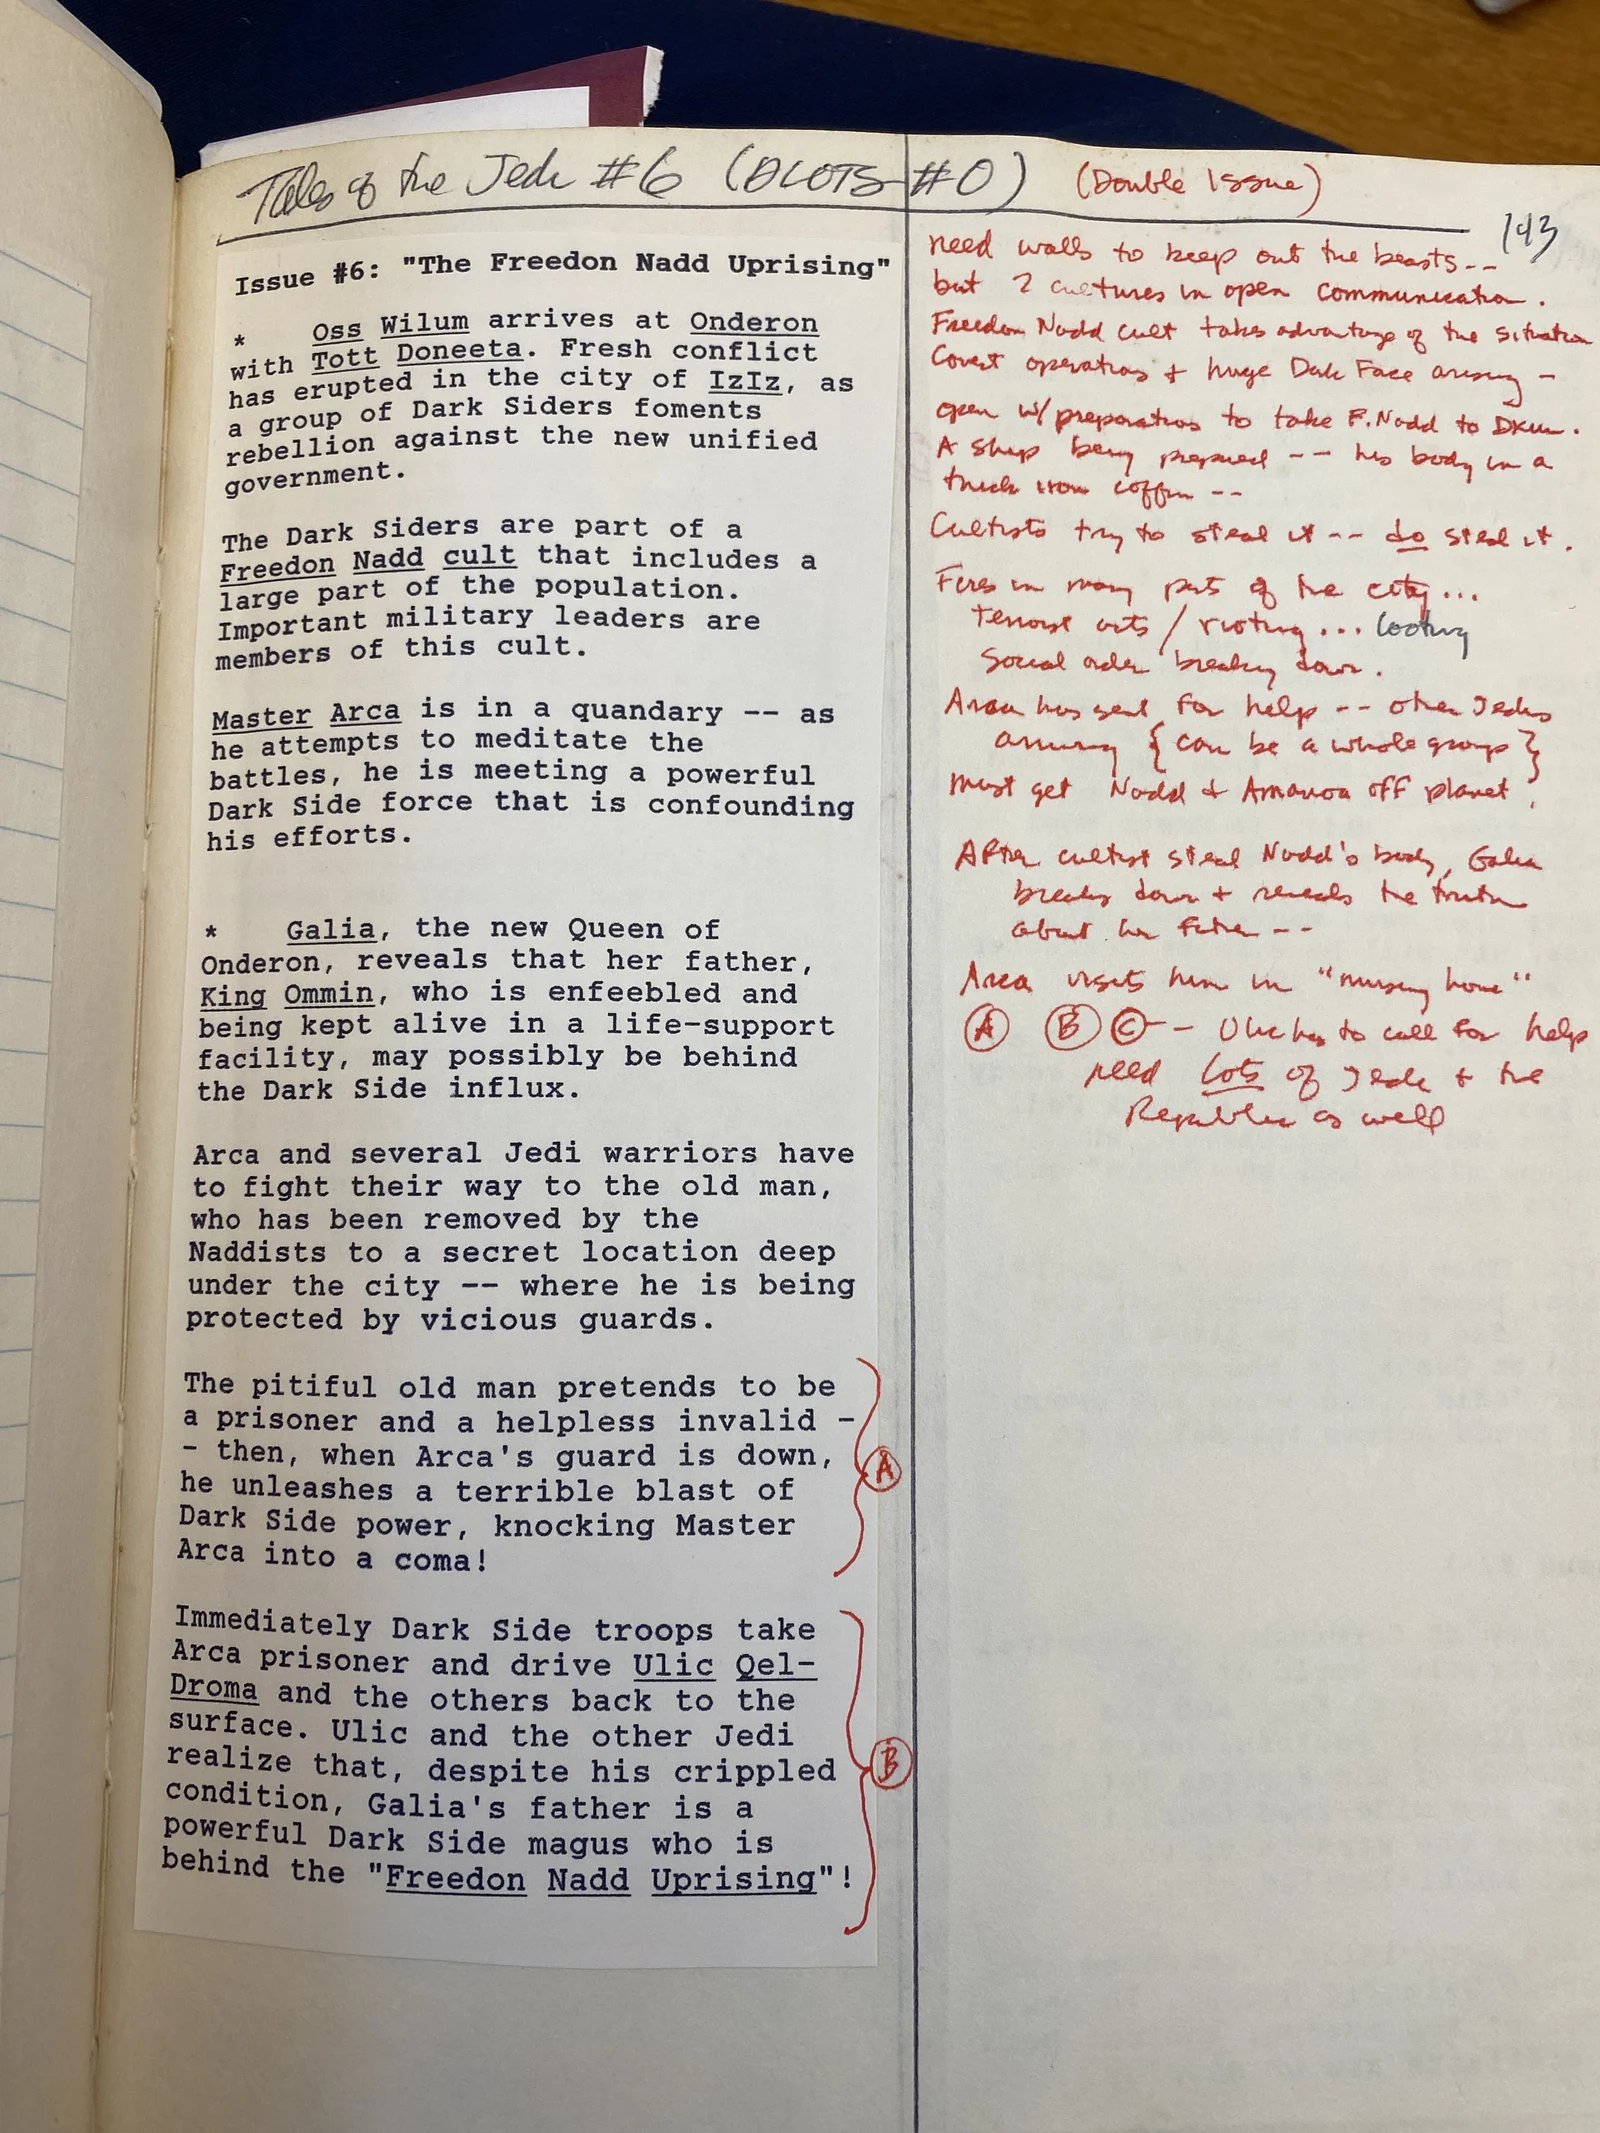 Tales of the Jedi #6 (DLOTS #0) (Double Issue)
143
Issue #6: "The Freedon Nadd Uprising"
* Oss Wilum arrives at Onderon
with Tott Doneeta. Fresh conflict
has erupted in the city of IzIz, as
a group of Dark Siders foments
rebellion against the new unified
government.
The Dark Siders are part of a
Freedon Nadd cult that includes a
large part of the population.
Important military leaders are
members of this cult.
Master Arca is in a quandary -- as
he attempts to meditate the
battles, he is meeting a powerful
Dark Side force that is confounding
his efforts.
* Galia, the new Queen of
Onderon, reveals that her father,
King Ommin, who is enfeebled and
being kept alive in a life-support
facility, may possibly be behind
the Dark Side influx.
Arca and several Jedi warriors have
to fight their way to the old man,
who has been removed by the
Naddists to a secret location deep
under the city -- where he is being
protected by vicious guards.
The pitiful old man pretends to be
a prisoner and a helpless invalid -
- then, when Arca's guard is down,
he unleashes a terrible blast of
Dark Side power, knocking Master
Arca into a coma!
A
Immediately Dark Side troops take
Arca prisoner and drive Ulic Qel-
Droma and the others back to the
surface. Ulic and the other Jedi
realize that, despite his crippled
condition, Galia's father is a
powerful Dark Side magus who is
behind the "Freedon Nadd Uprising"!
B
need walls to keep out the beasts --
but 2 cultures in open communication.
Freedon Nadd cult takes advantage of the situation
Covert operations + huge Dark Face arising -
open w/ preparations to take F. Nadd to Dxun.
A ship being prepared -- his body in a
thick iron coffin --
Cultists try to steal it -- do steal it.
Fires in many parts of the city...
terrorist acts / rioting... looting
Social order breaking down.
Arca has sent for help -- other Jedis
arriving {can be a whole group}
must get Nadd + Amanoa off planet.
After cultist steal Nadd's body, Galia
breaks down + reveals the truth
about her father --
Arca visits him in "nursing home"
A B C -- Ulic has to call for help
need lots of Jedi + the
Republic as well